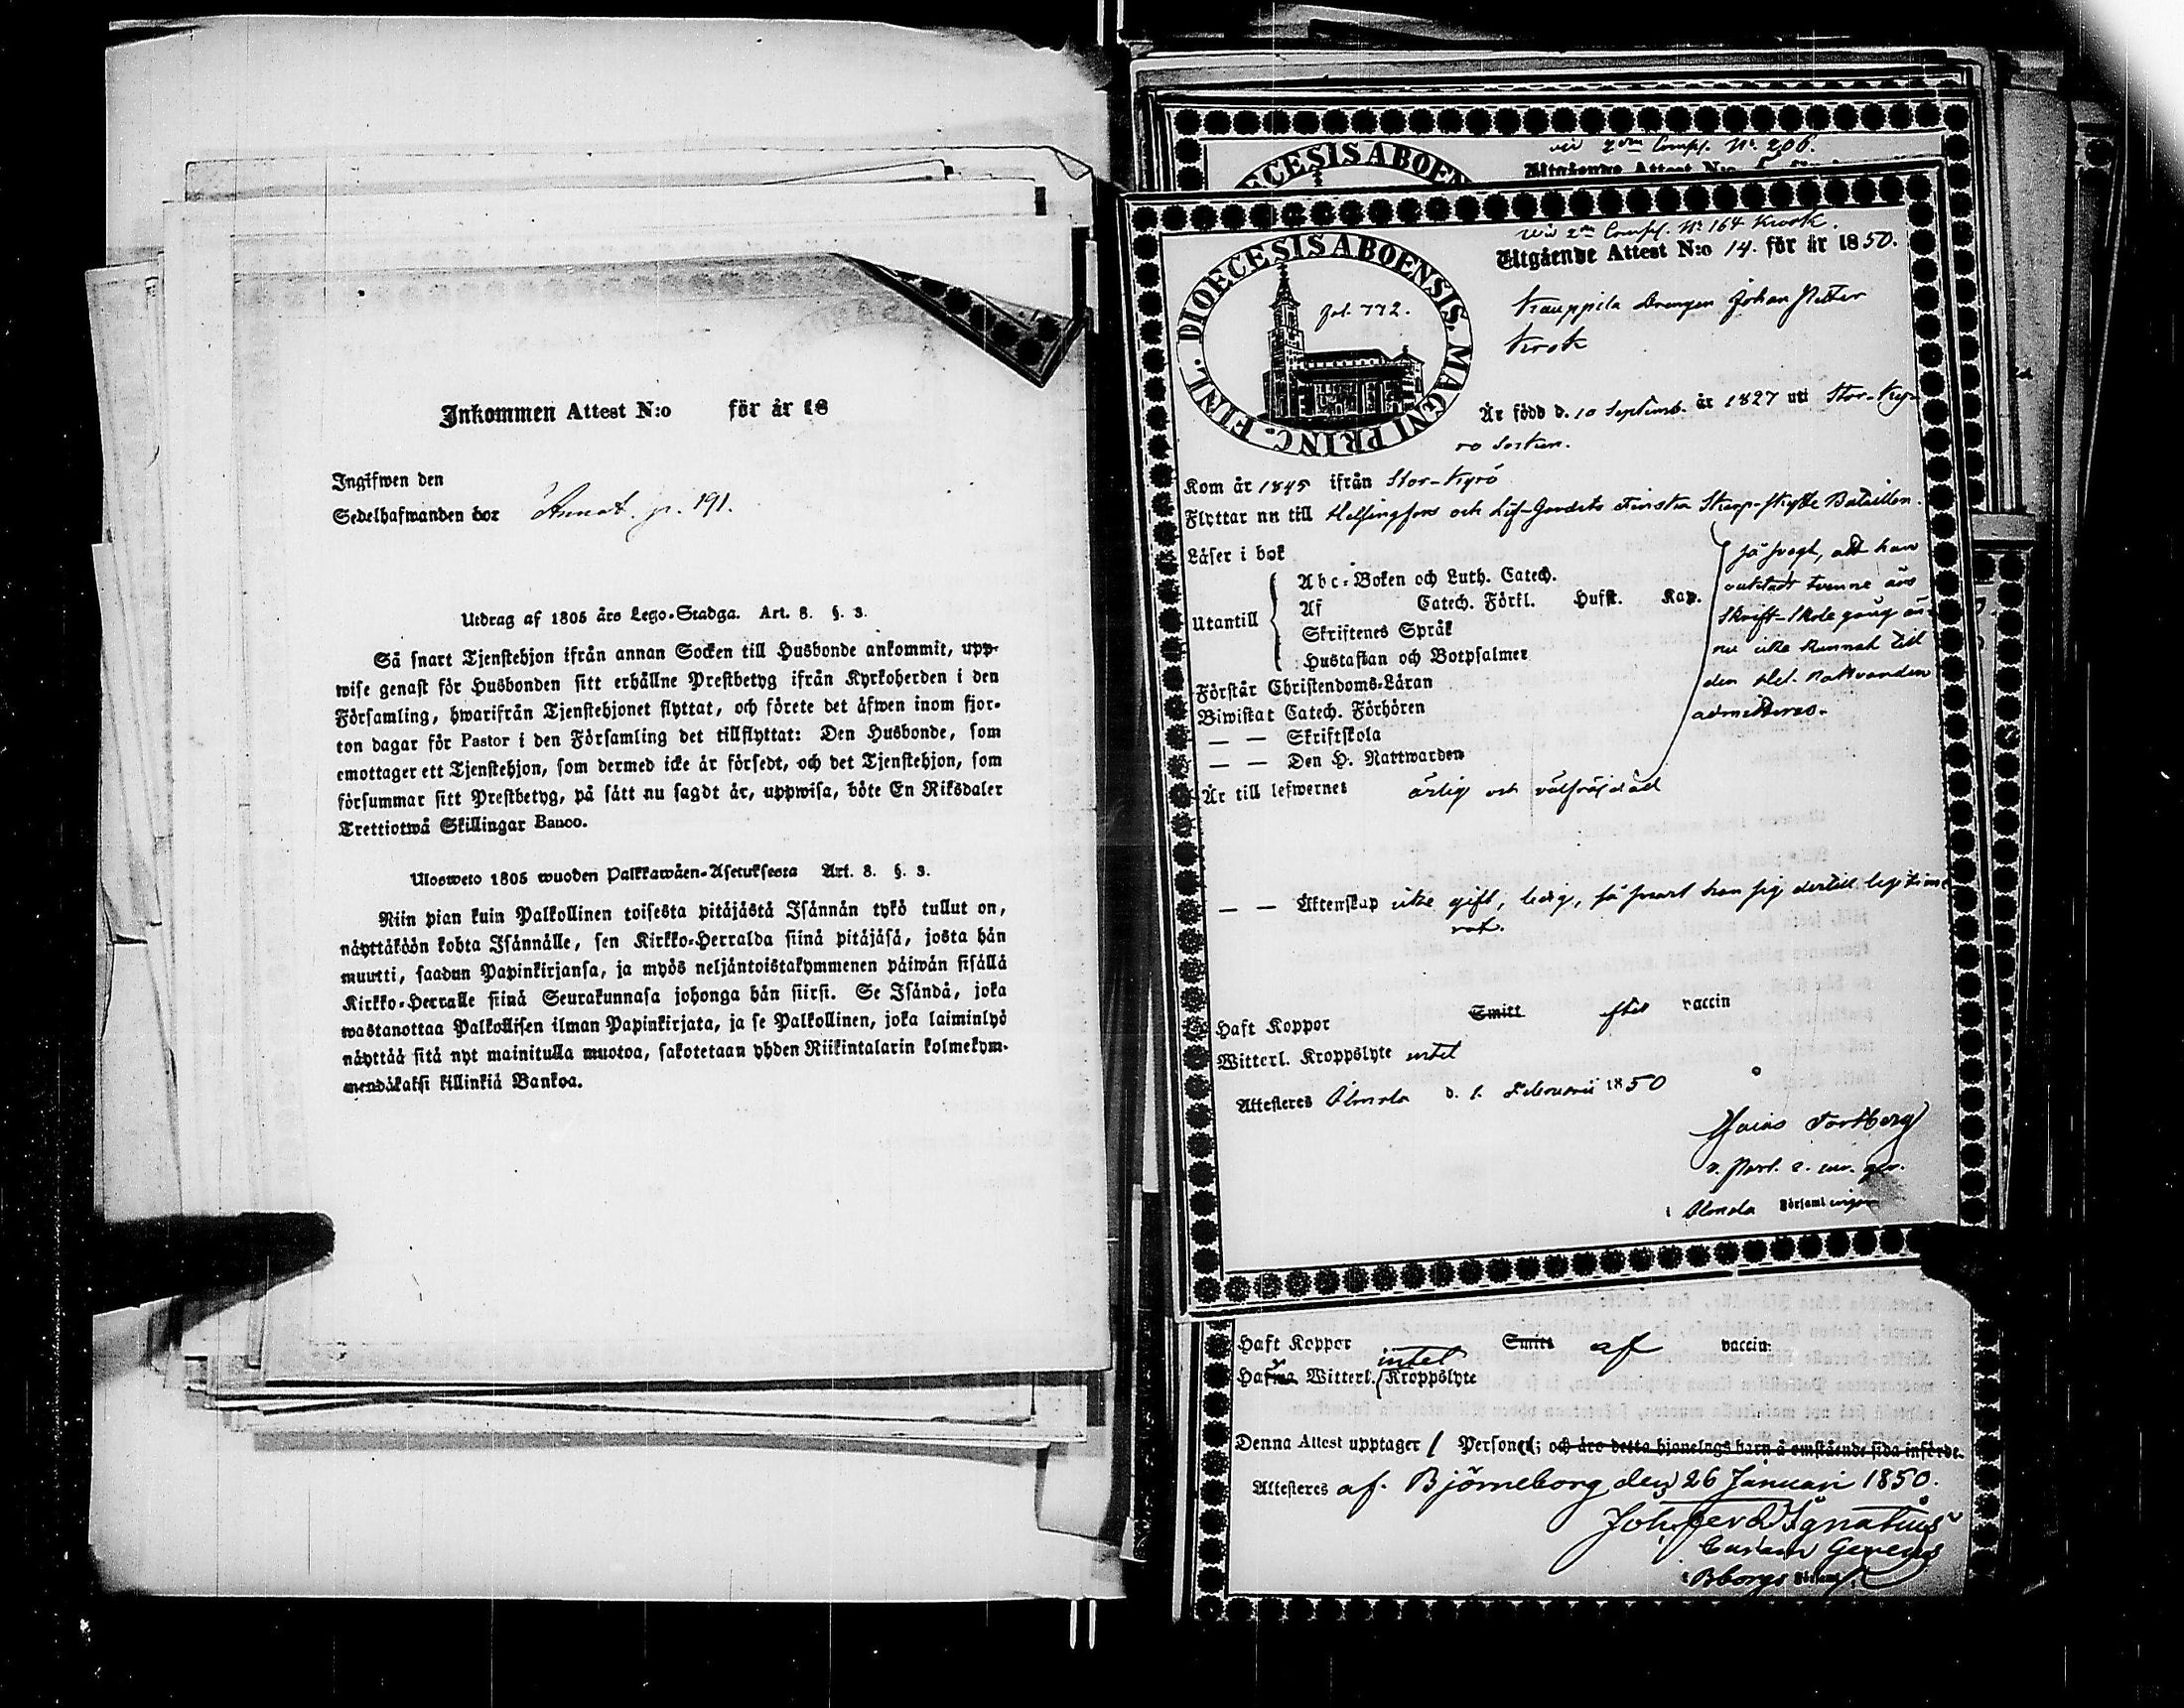 Inkommen Attest N:o för år 18
Ingifwen den
Sedelhafwanden bor Annot. p. 191.
Utdrag af 1805 års Lego-Stadga. Art. 8. §. 3.
Så snart Tjenstehjon ifrån annan Socken till Husbonde ankommit, upp-
wise genast för Husbonden sitt erhållne Prestbetyg ifrån Kyrkoherden i den
Församling, hwarifrån Tjenstehjonet flyttat, och förete det äfwen inom fjor-
ton dagar för Pastor i den Församling det tillflyttat: Den Husbonde, som
emottager ett Tjenstehjon, som dermed icke är försedt, och det Tjenstehjon, som
försummar sitt Prestbetyg, på sätt nu sagdt är, uppwisa, böte En Riksdaler
Trettiotwå Skillingar Banco.
Ulosweto 1805 wuoden Palkkawäen-Asetuksesta Art. 8. §. 3.
Niin pian kuin Palkollinen toisesta pitäjästä Isännän tykö tullut on,
näyttäköön kohta Isännälle, sen Kirkko-Herralda siinä pitäjäsä, josta hän
muutti, saadun Papinkirjansa, ja myös neljäntoistakymmenen päiwän sisällä
Kirkko-Herralle siinä Seurakunnasa johonga hän siirsi. Se Isändä, joka
wastanottaa Palkollisen ilman Papinkirjata, ja se Palkollinen, joka laiminlyö
näyttää sitä nyt mainitulla muotoa, sakotetaan yhden Riikintalarin kolmekym-
mendäkaksi killinkiä Bankoa.
vid 2dra Compl. No. 206.
Utgående Attest N:o
vid 2a Compl. No 164 Krook.
Utgående Attest N:o 14. för år 1850.
DIOECESIS ABOENSIS. MAGNI PRINC. FINL.
fol. 772.
Kauppila Drengen Johan Petter
Krok
Är född d. 10 Septemb. år 1827 uti Stor-Kyr-
ro Socken.
Kom år 1845 ifrån Stor-Kyrö
Flyttar nu till Helsingfors och Lif-Gardets Finska Skarp-skytte Bataillon.
Läser i bok
Utantill
Abc-Boken och Luth. Catech.
Af Catech. Förkl. Hufst. Kap.
Skriftenes Språk
Hustaflan och Botpsalmer
Förstår Christendoms-Läran
Biwistat Catech. Förhören
— — Skriftskola
— — Den H. Nattwarden
så svagt, att han
outstadt tvenne års
Skrift-Skole gång än-
nu icke kunnat till
den Hel. Nattvarden
admitteras.
Är till lefwernet ärlig och välfräjdad
— — Äktenskap icke gift, ledig, så snart han sig dertill legitime-
rat.
Haft Koppor Smitt efter vaccin
Witterl. Kroppslyte intet
Attesteres Ulmola d. 1. Februarii 1850
Esaias Forsberg
v. Past. e. cur. ger.
i Ulmola Församlingen
Haft Koppor Smitt af vaccin.
Har Witterl. intet Kroppslyte
Denna Attest upptager 1 Person; och äro detta hjonelags barn å omstående sida införde.
Attesteres af. Björneborg den 26 Januari 1850.
Joh. Ferd. Ignatius
Curam Gerens
i Bborgs Församl.